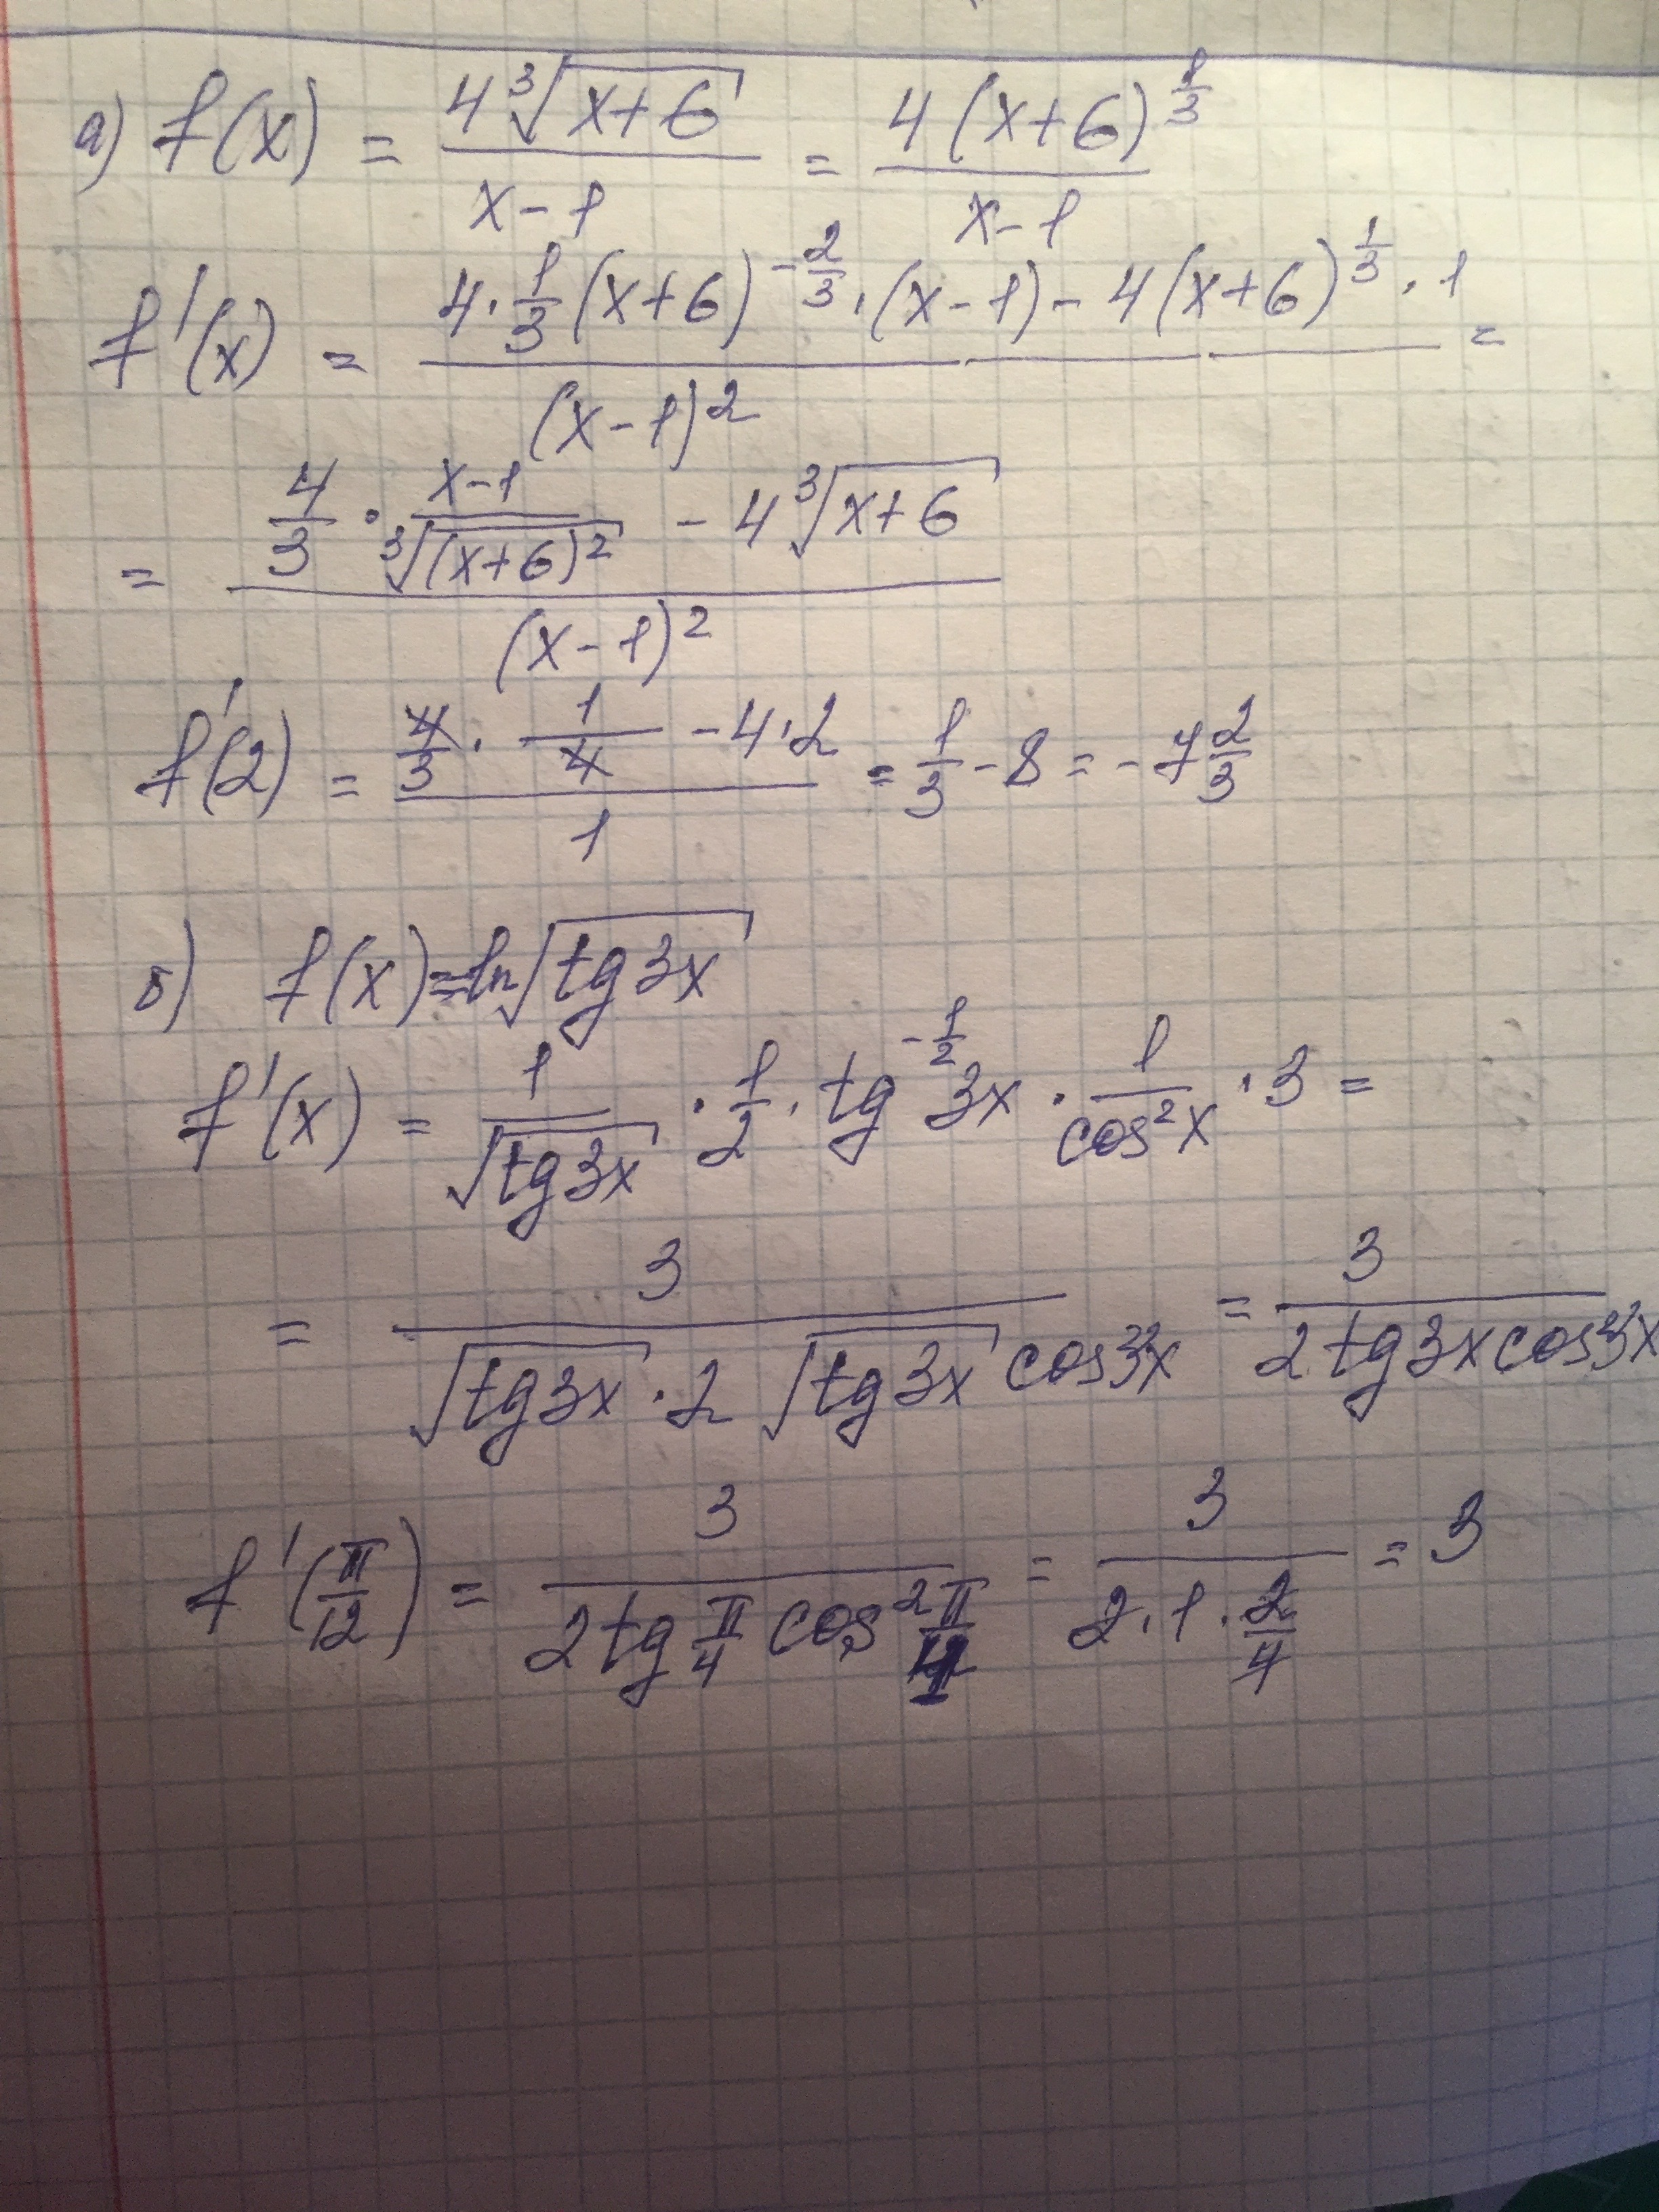 а) f(x) = 4∛(x+6) / (x-1) = 4(x+6)^(1/3) / (x-1)
f'(x) = (4·1/3(x+6)^(-2/3)·(x-1) - 4(x+6)^(1/3)·1) / (x-1)² =
= (4/3 · (x-1)/∛((x+6)²) - 4∛(x+6)) / (x-1)²
f'(2) = (4/3 · 1/4 - 4·2) / 1 = 1/3 - 8 = -7 2/3
б) f(x) = ln√(tg3x)
f'(x) = 1/√(tg3x) · 1/2 · tg^(-1/2) 3x · 1/cos²x · 3 =
= 3 / (√(tg3x) · 2√(tg3x) cos²3x) = 3 / (2tg3x cos²3x)
f'(π/12) = 3 / (2tg π/4 cos² π/4) = 3 / (2·1·2/4) = 3